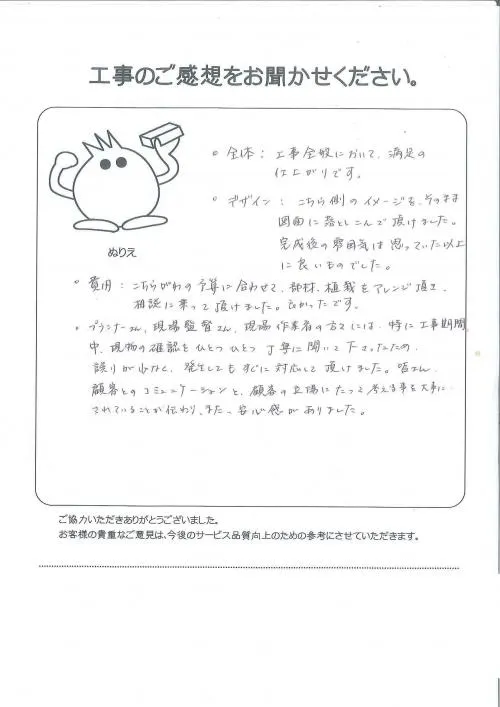 工事のご感想をお聞かせください。
。全体：工事全般において、満足の
仕上がりです。
。デザイン：こちら側のイメージを、そのまま
図面に落としこんで頂けました。
完成後の雰囲気は思っていた以上
に良いものでした。
ぬりえ
。費用：こちらがわの予算に合わせて、部材、植栽をアレンジ頂き、
相談に乗って頂けました。良かったです。
。プランナーさん、現場監督さん、現場作業者の方々には、特に工事期間
中、現物の確認をひとつひとつ丁寧に聞いて下さったため、
誤りが少なく、発生してもすぐに対応して頂けました。皆さん、
顧客とのコミュニケーションと、顧客の立場にたって考える事を大事に
されていることが伝わり、また、安心感がありました。
ご協力いただきありがとうございました。
お客様の貴重なご意見は、今後のサービス品質向上のための参考にさせていただきます。